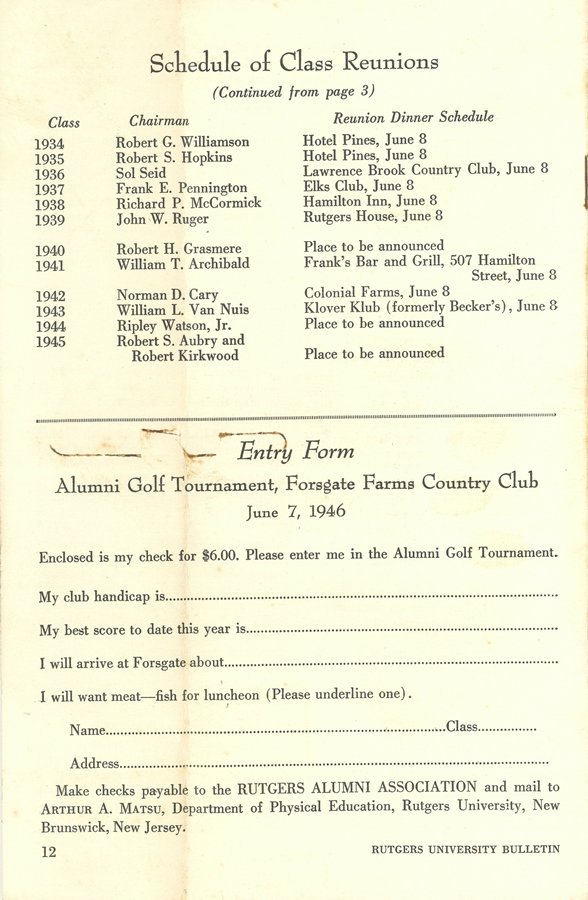 Schedule of Class Reunions
(Continued from page 3)
Class Chairman Reunion Dinner Schedule
1934 Robert G. Williamson Hotel Pines, June 8
1935 Robert S. Hopkins Hotel Pines, June 8
1936 Sol Seid Lawrence Brook Country Club, June 8
1937 Frank E. Pennington Elks Club, June 8
1938 Richard P. McCormick Hamilton Inn, June 8
1939 John W. Ruger Rutgers House, June 8
1940 Robert H. Grasmere Place to be announced
1941 William T. Archibald Frank's Bar and Grill, 507 Hamilton
Street, June 8
1942 Norman D. Cary Colonial Farms, June 8
1943 William L. Van Nuis Klover Klub (formerly Becker's), June 8
1944 Ripley Watson, Jr. Place to be announced
1945 Robert S. Aubry and
Robert Kirkwood Place to be announced
Entry Form
Alumni Golf Tournament, Forsgate Farms Country Club
June 7, 1946
Enclosed is my check for $6.00. Please enter me in the Alumni Golf Tournament.
My club handicap is
My best score to date this year is
I will arrive at Forsgate about
I will want meat—fish for luncheon (Please underline one).
Name Class
Address
Make checks payable to the RUTGERS ALUMNI ASSOCIATION and mail to
ARTHUR A. MATSU, Department of Physical Education, Rutgers University, New
Brunswick, New Jersey.
12 RUTGERS UNIVERSITY BULLETIN